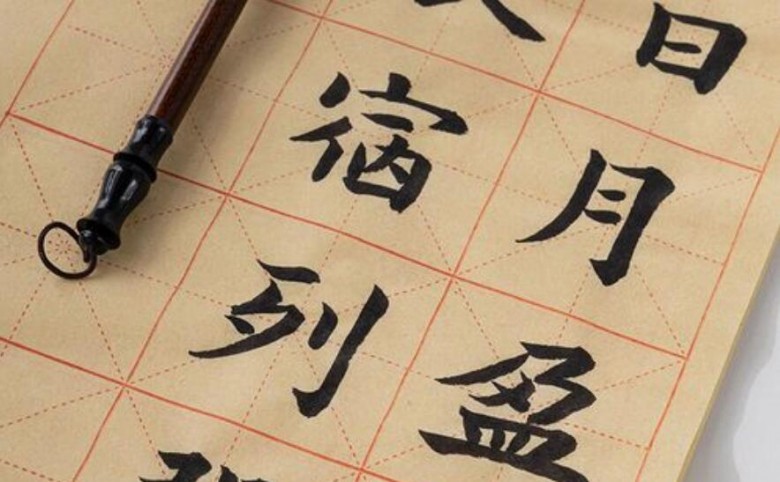 日月盈
宿列